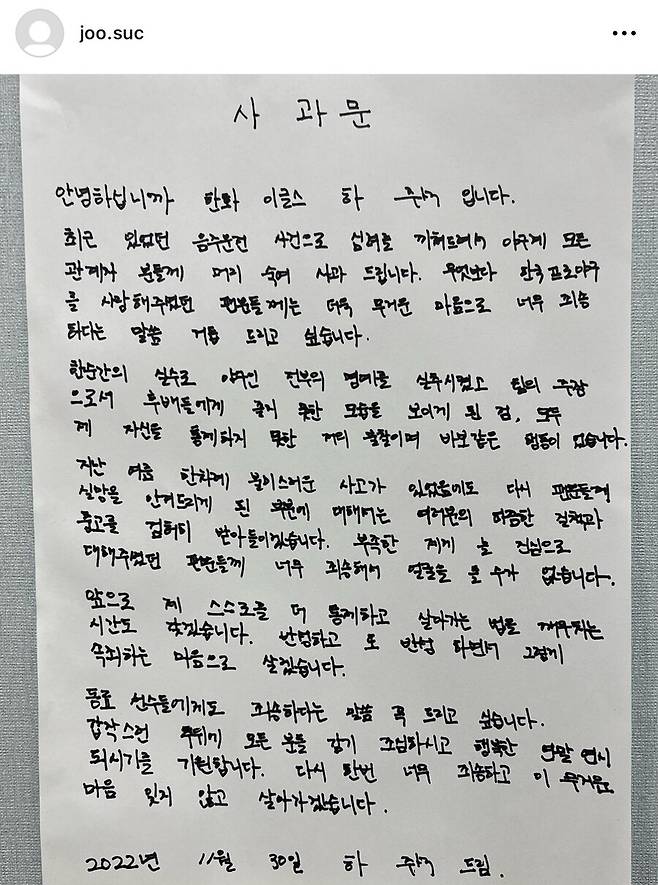 joo.suc
사 과 문
안녕하십니까 한화 이글스 하 주석 입니다.
최근 있었던 음주운전 사건으로 심려를 끼쳐드려서 야구계 모든
관계자 분들께 머리 숙여 사과 드립니다. 무엇보다 한국프로야구
를 사랑해주셨던 팬분들께는 더욱 무거운 마음으로 너무 죄송
하다는 말씀 거듭 드리고 싶습니다.
한순간의 실수로 야구인 전부의 명예를 실추시켰고 팀의 주장
으로서 후배들에게 좋지 못한 모습을 보이게 된 점, 모두
제 자신을 통제하지 못한 저의 불찰이며 바보같은 행동이 었습니다.
지난 여름 한차례 불미스러운 사고가 있었음에도 다시 팬분들께
실망을 안겨드리게 된 부분에 대해서는 여러분의 따끔한 질책과
충고를 겸허히 받아들이겠습니다. 부족한 제게 늘 진심으로
대해주셨던 팬분들께 너무 죄송해서 얼굴을 들 수가 없습니다.
앞으로 제 스스로를 더 통제하고 살아가는 법을 깨우치는
시간도 갖겠습니다. 반성하고 또 반성 하면서 그렇게
속죄하는 마음으로 살겠습니다.
동료 선수들에게도 죄송하다는 말씀 꼭 드리고 싶습니다.
갑작스런 추위에 모든 분들 감기 조심하시고 행복한 연말 연시
되시기를 기원합니다. 다시 한번 너무 죄송하고 이 무거운
마음 잊지 않고 살아가겠습니다.
2022년 11월 30일 하 주석 드림.